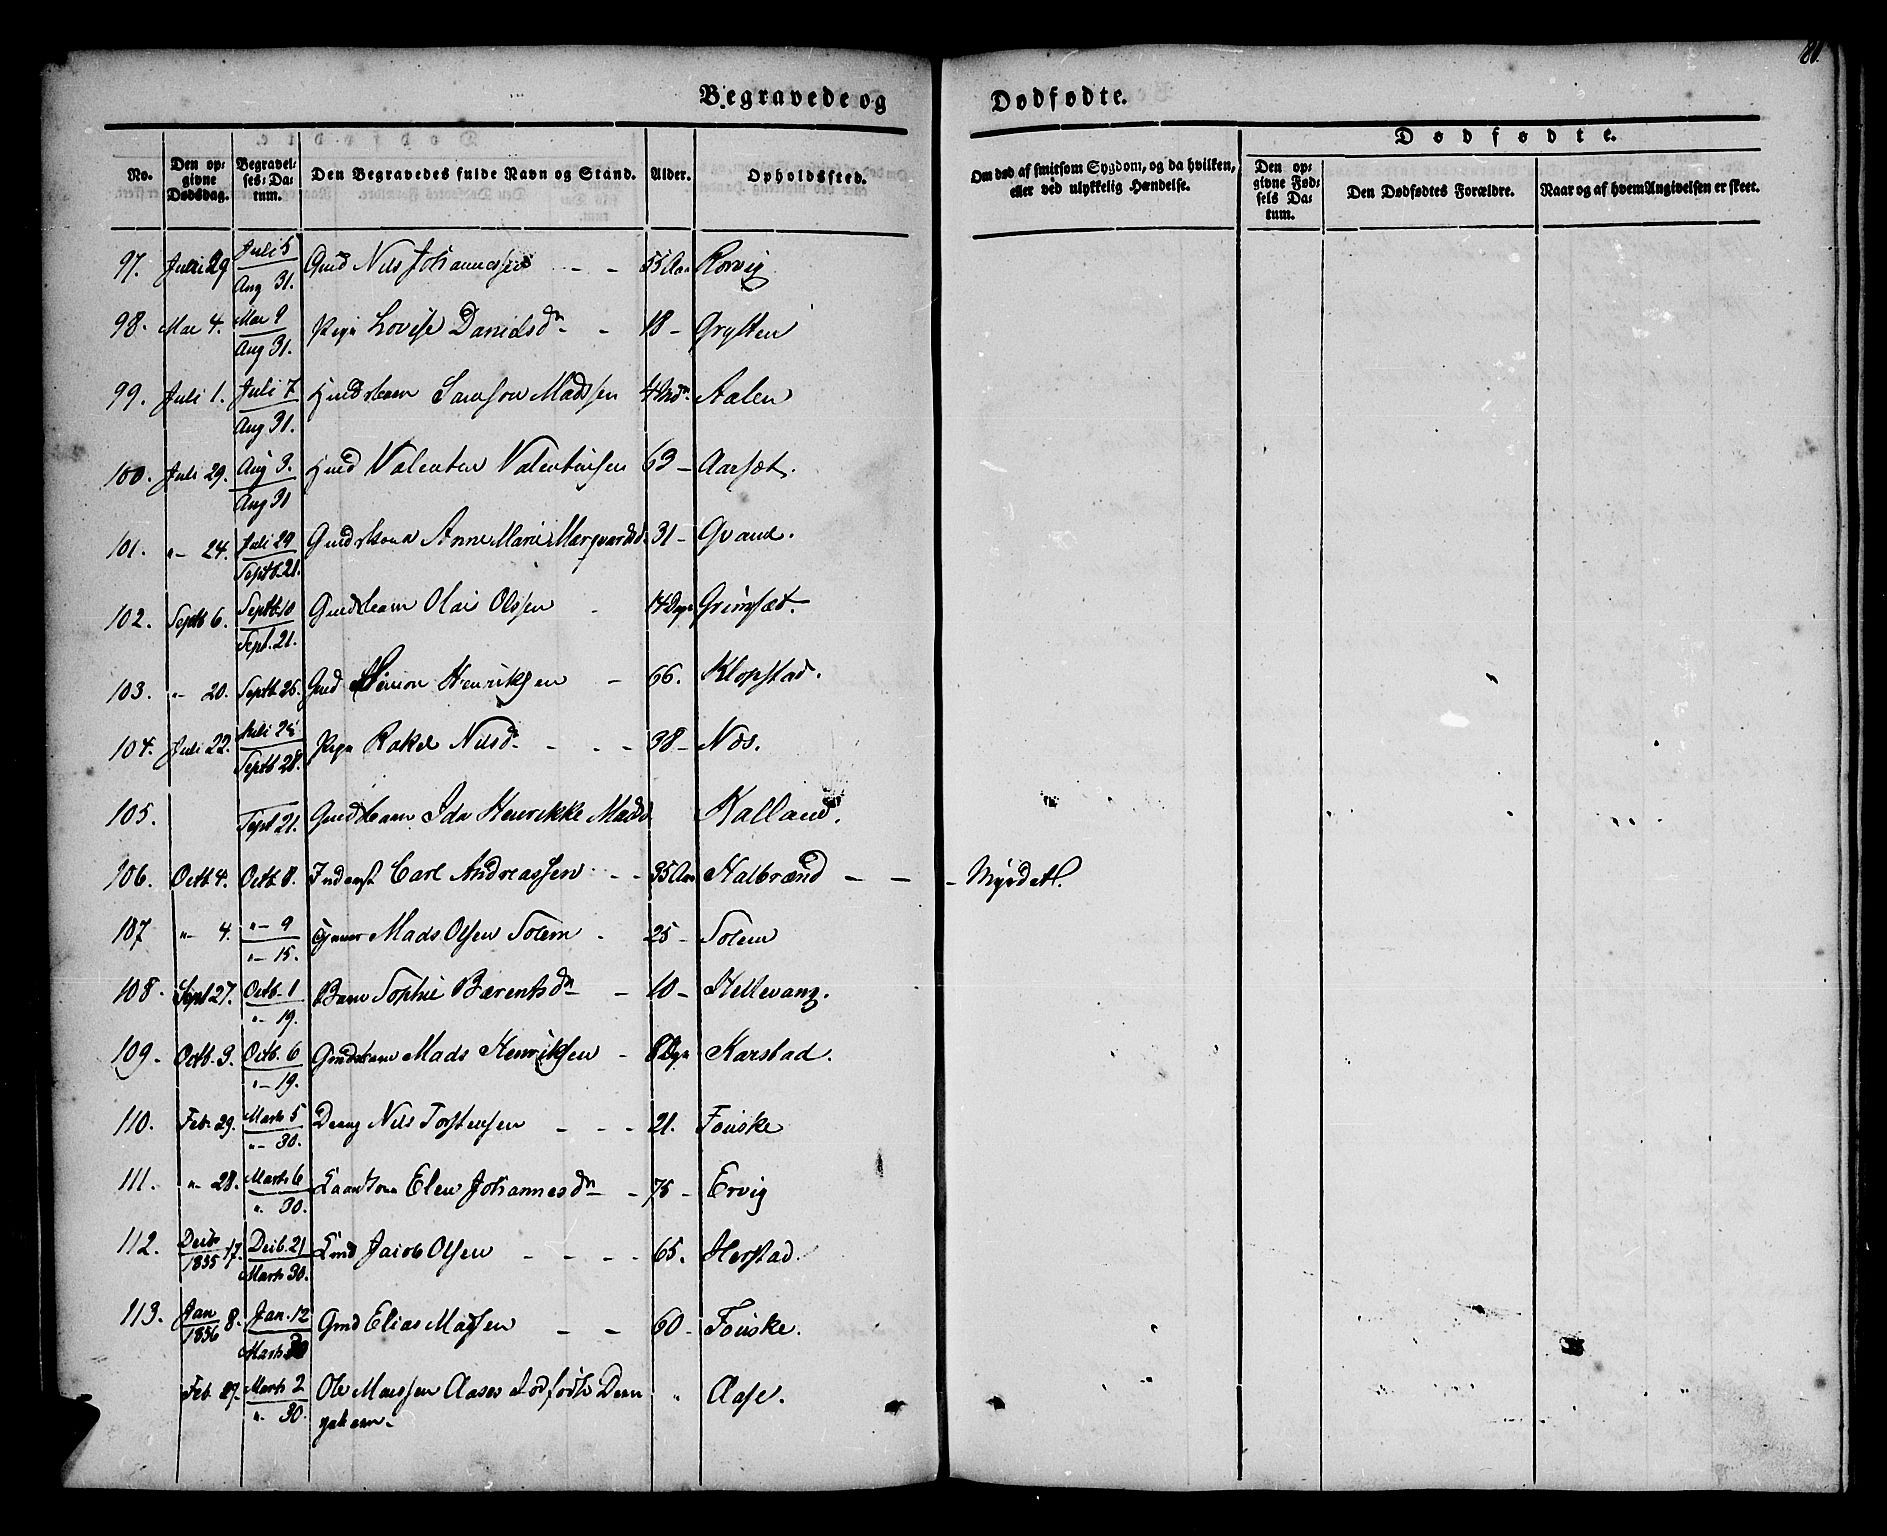 80.
Begravede og Dødfødte.
No. Den opgivne Dødsdag. Begravelses-Datum. Den Begravedes fulde Navn og Stand. Alder. Opholdssted. Om død af smitsom Sygdom, og da hvilken, eller ved ulykkelig Hændelse. Dødfødte. Den opgivne Fødsels Datum. Den Dødfødtes Forældre. Naar og af hvem Angivelsen er skeet.
97. Juni 29 Juli 5 Aug 31. Gmd Nils Johannessen - - 55 Aar Rørvig
98. Mai 4. Mai 9 Aug 31. Pign Lovise Danielsdn - 18 - Grytten
99. Juli 1. Juli 7 Aug 31. Madssen 4 Mdn Aalen
100. Juli 29. Aug 3. Aug 31 Valentin Valentinsen 63 - Aarsæt.
101. " - 24. Juli 29 Septb. 21. Anne Marie Marqvardsd. 31 - Qvand.
102. Septb 6. Septb. 10 Sept. 21. Gmdsbarn Olai Olssen - 14 Dage Grimsæt.
103. " - 20. Septb. 25. Gmd Simon Henriksen - 66. Klopstad.
104. Juli 22. Juli 25 Septb 28. Pign Rakel Nilsdn - - - 38 - Næs.
105. Sept 21. Gmdsbarn Ida Henrikke Madsd Kalland.
106. Octb. 4. Octb. 8. Inderst Carl Andreassen - - 35 Aar Halbrænd - - - Myrdet.
107 " - 4. " - 9 " - 15. Mads Olsen Solem - 25 - Solem
108. Sept 27. Octb. 1 " - 19. Barn Sophie Bærentsdn - 10 - Hellevang.
109. Octb. 3. Octb. 6 " - 19. Gmdsbarn Mads Henriksen - 8 Dge Karstad.
110. Feb. 29. Marts 5 " - 30. Dreng Nils Torstensen - - - 21. Fouske
111. " - 28. Marts 6 " 30. Elen Johannesdn - 75 - Ervig
112. Decb. 1835 17. Decb. 21 Marts 30. Gmd Jacob Olsen - - - - 65. Herstad.
113. Jan 1836 8. Jan. 12 Marts 30 Gmd Elias Madsen - - 60 - Fouske.
Feb. 27. Marts 2 " - 30. Ole Aases Dødfødte Dren
gebarn. " Aase.